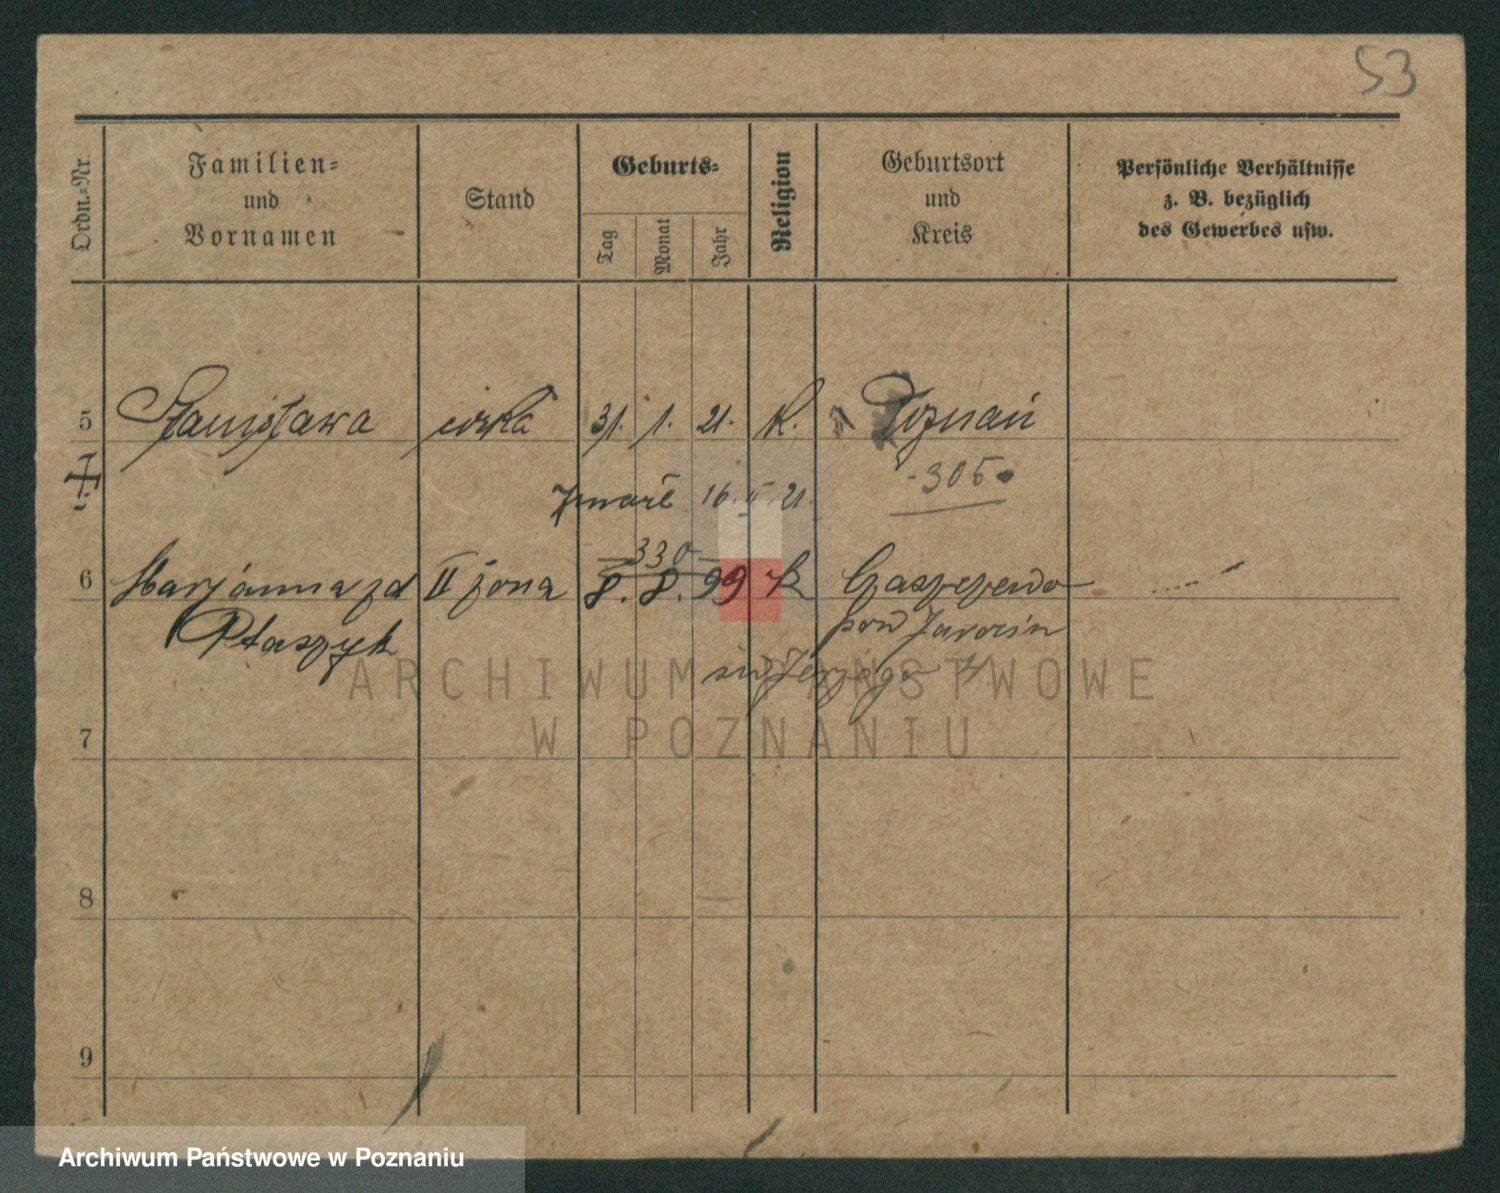 53
Ordn.-Nr.
Familien-
und
Vornamen
Stand
Geburts-
Tag
Monat
Jahr
Religion
Geburtsort
und
Kreis
Persönliche Verhältnisse
z. B. bezüglich
des Gewerbes usw.
5 Stanisława córka 31. 1. 21. K. Poznań
-305
zmarł 16. II. 21.
330
6 Marjanna zd II żona 8. 8. 99 K
Ptaszyk pod Jarocin
ARCHIWUM PAŃSTWOWE
W POZNANIU
7
8
9
Archiwum Państwowe w Poznaniu